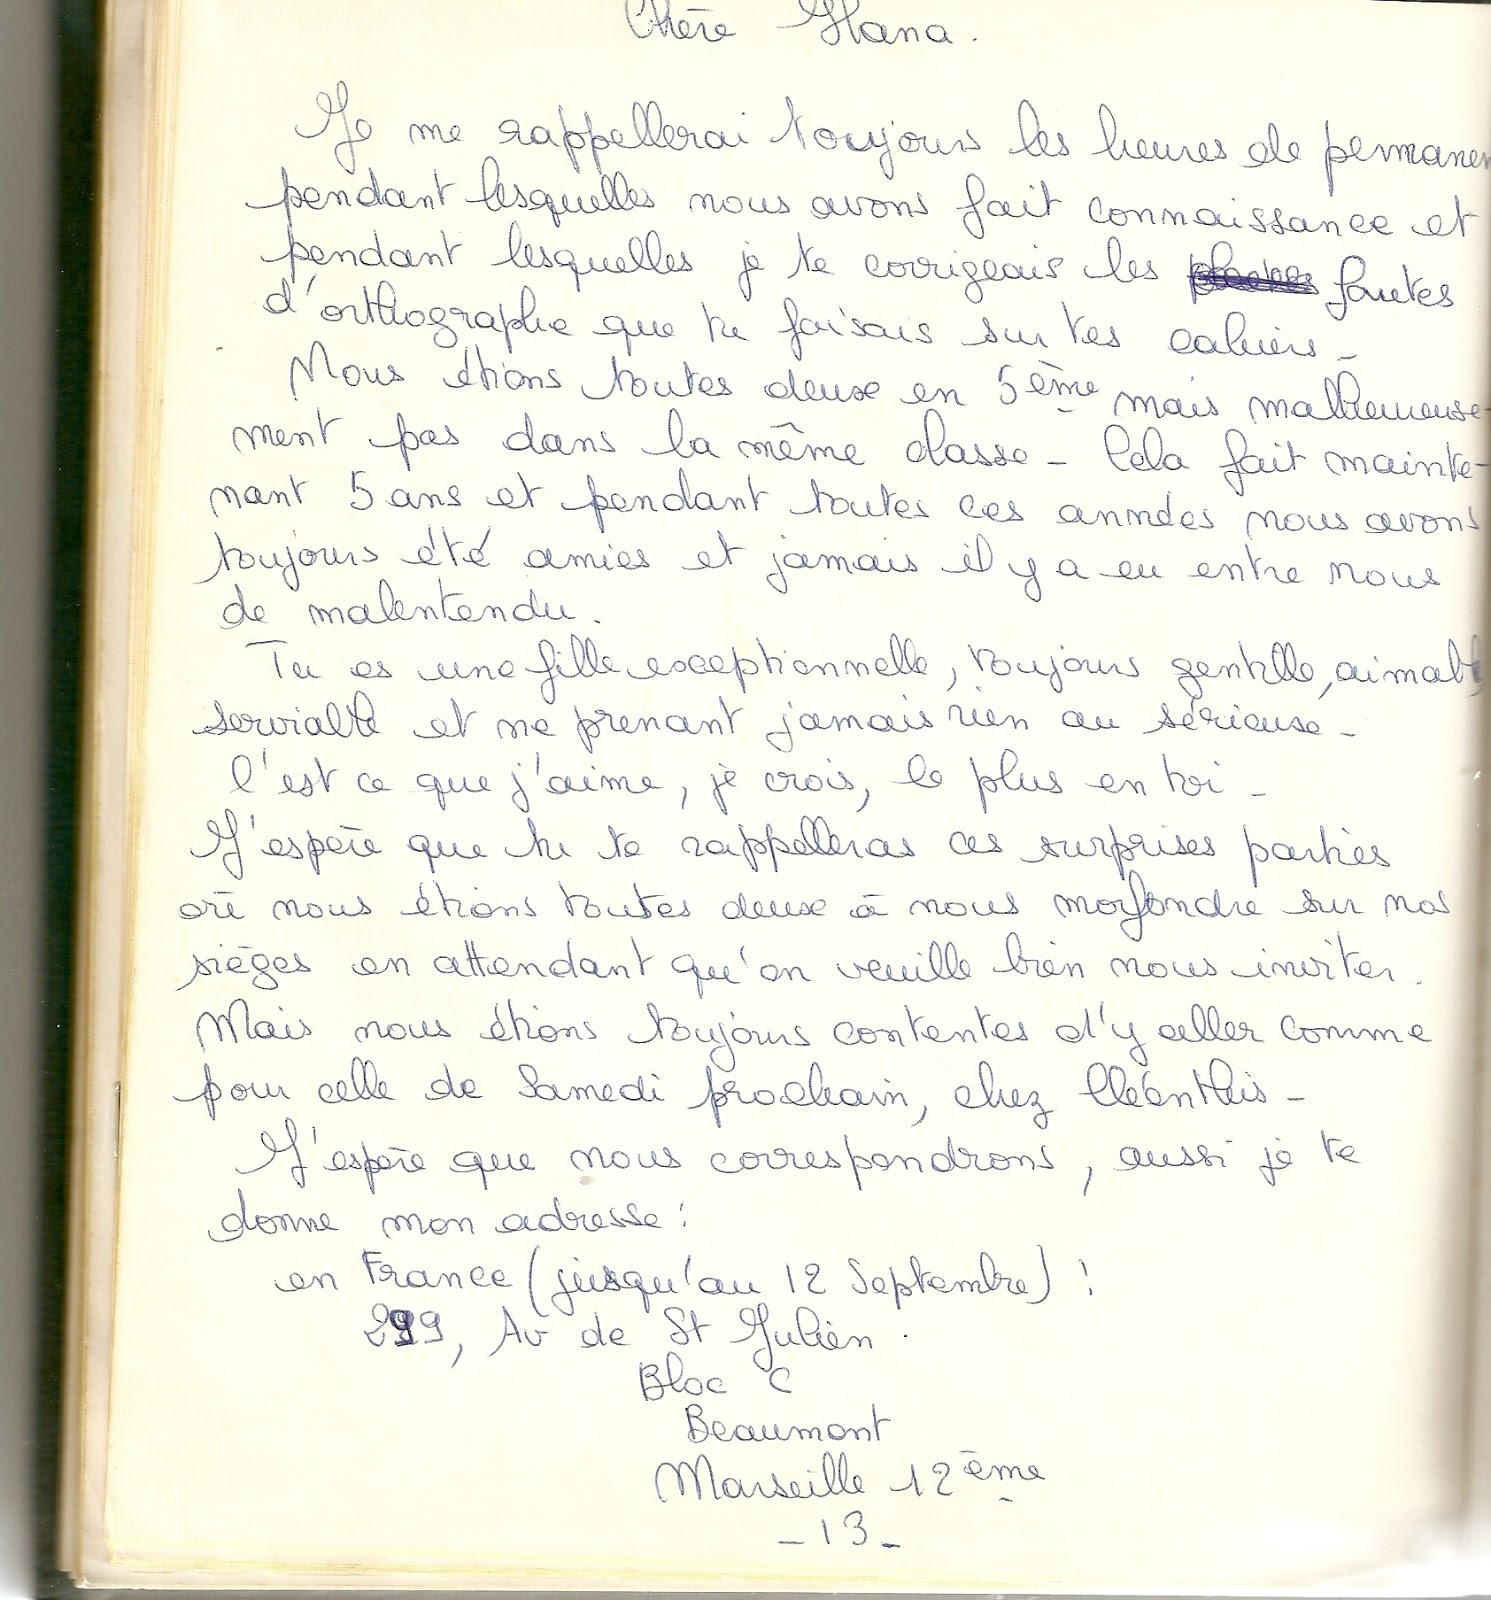 Chère Ilana.
Je me rappellerai toujours les heures de permanen
pendant lesquelles nous avons fait connaissance et
pendant lesquelles je te corrigeais les fautes
d'orthographe que tu faisais sur tes cahiers -
Nous étions toutes deux en 5ème mais malheureuse-
ment pas dans la même classe - Cela fait mainte-
nant 5 ans et pendant toutes ces années nous avons
toujours été amies et jamais il y a eu entre nous
de malentendu.
Tu es une fille exceptionnelle, toujours gentille, aimable,
serviable et ne prenant jamais rien au sérieux -
C'est ce que j'aime, je crois, le plus en toi -
J'espère que tu te rappelleras ces surprises parties
où nous étions toutes deux à nous morfondre sur nos
sièges en attendant qu'on veuille bien nous inviter.
Mais nous étions toujours contentes d'y aller comme
pour celle de Samedi prochain, chez Cléanthis -
J'espère que nous correspondrons, aussi je te
donne mon adresse :
en France (jusqu'au 12 Septembre) :
299, Av de St Julien.
Bloc C
Beaumont
Marseille 12ème
- 13 -